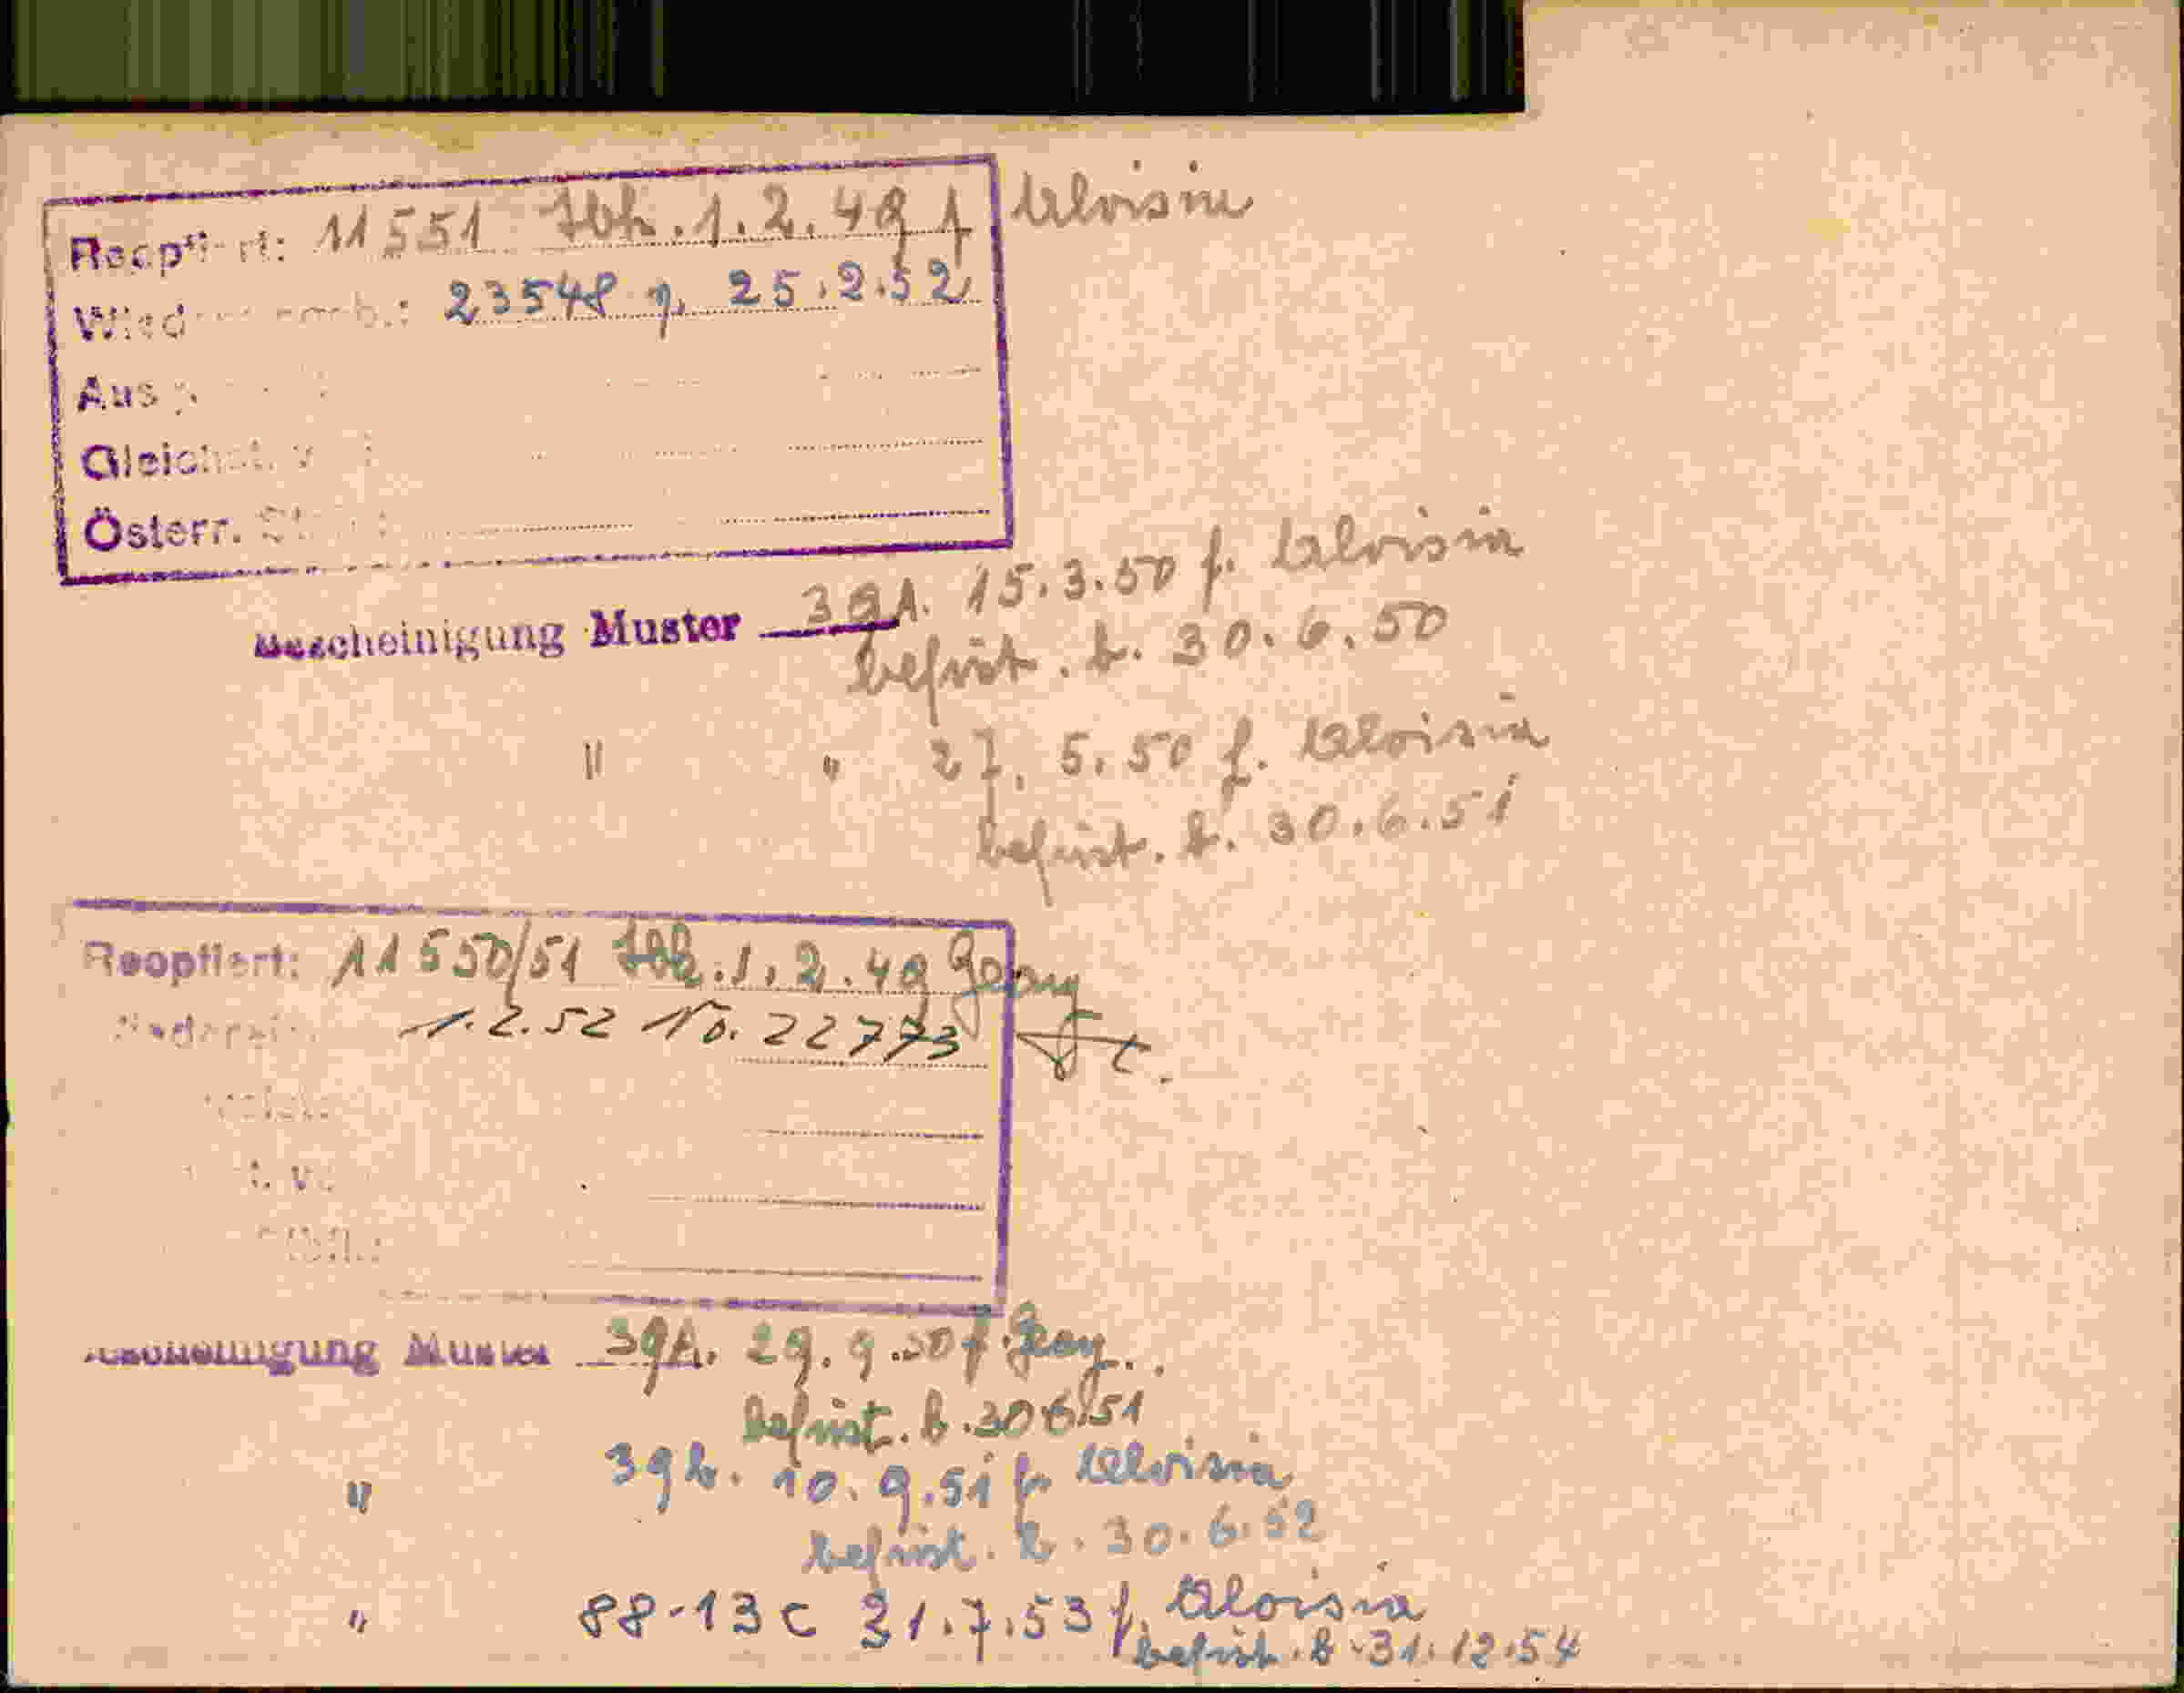 Reoptiert: 11551 Ibk. 1.2.49 f Aloisia
23548 v. 25.2.52
Österr.
Bescheinigung Muster 39A. 15.3.50 f. Aloisia
befrist. b. 30.6.50
" " 27.5.50 f. Aloisia
befrist. b. 30.6.51
Reoptiert: 11550/51 Ibk. 1.2.49 Georg
1.2.52 No. 22773
Bescheinigung Muster 39A. 29.9.50 f. Georg.
befrist. b. 30.6.51
" 39b. 10.9.51 f. Aloisia
befrist. b. 30.6.52
" 88-13c 31.7.53 f. Aloisia
befrist. b. 31.12.54